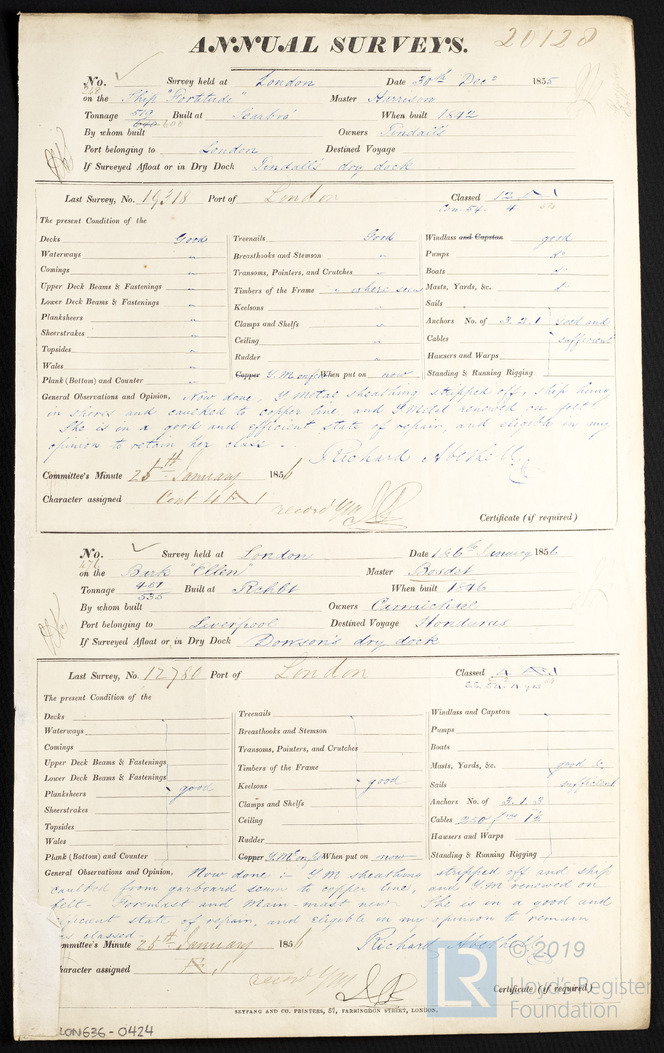 ANNUAL SURVEYS. 20128
No. 268 Survey held at London Date 30th Decr 1855
on the Ship "Fortitude" Master Harrison
Tonnage 519 640 608 Built at Scarbro' When built 1842
By whom built Owners Tindall's
Port belonging to London Destined Voyage
If Surveyed Afloat or in Dry Dock Tindall's dry dock
Last Survey, No. 19318 Port of London Classed 12 A 1
Con. 54. 4
The present Condition of the
Decks Good Treenails Good Windlass and Capstan good
Waterways " Breasthooks and Stemson " Pumps do
Comings " Transoms, Pointers, and Crutches " Boats do
Upper Deck Beams & Fastenings " Timbers of the Frame " where seen Masts, Yards, &c. do
Lower Deck Beams & Fastenings " Keelsons " Sails
Planksheers " Clamps and Shelfs " Anchors No. of 3.2.1 good and
Sheerstrakes " Ceiling " Cables sufficient
Topsides " Rudder " Hawsers and Warps
Wales " Copper Y.M. on felt When put on now Standing & Running Rigging
Plank (Bottom) and Counter "
General Observations and Opinion, Now done, Y Metal sheathing stripped off, ship hung
in shores and caulked to copper line, and Y Metal renewed on felt
She is in a good and efficient state of repair, and eligible in my
opinion to retain her class.
Richard Abethell
Committee's Minute 25th January 1856
Character assigned Cont 4 A 1
record YM
Certificate (if required)
No. 476 Survey held at London Date 1&6th January 1856
on the Bark "Ellen" Master Bosdet
Tonnage 461 535 Built at When built 1846
By whom built Owners Carmichael
Port belonging to Liverpool Destined Voyage Honduras
If Surveyed Afloat or in Dry Dock Dowson's dry dock
Last Survey, No. 12780 Port of London Classed A 1
The present Condition of the
Decks Treenails Windlass and Capstan
Waterways Breasthooks and Stemson Pumps
Comings Transoms, Pointers, and Crutches Boats
Upper Deck Beams & Fastenings Timbers of the Frame Masts, Yards, &c. good &
Lower Deck Beams & Fastenings Keelsons good Sails sufficient
Planksheers good Clamps and Shelfs Anchors No. of 3.1.3
Sheerstrakes Ceiling Cables
Topsides Rudder Hawsers and Warps
Wales Copper Y.M. on felt When put on now Standing & Running Rigging
Plank (Bottom) and Counter
General Observations and Opinion, Now done :- YM sheathing stripped off and ship
caulked from garboard seam to copper line, and YM renewed on
felt - Foremast and Main-mast new - She is in a good and
efficient state of repair, and eligible in my opinion to remain
as classed.
Richard Abethell
ommittee's Minute 25th January 1856
haracter assigned A 1
record YM
Certificate (if required)
SEYFANG AND CO. PRINTERS, 57, FARRINGDON STREET, LONDON.
LON636-0424
LR © 2019
Lloyd's Register
Foundation